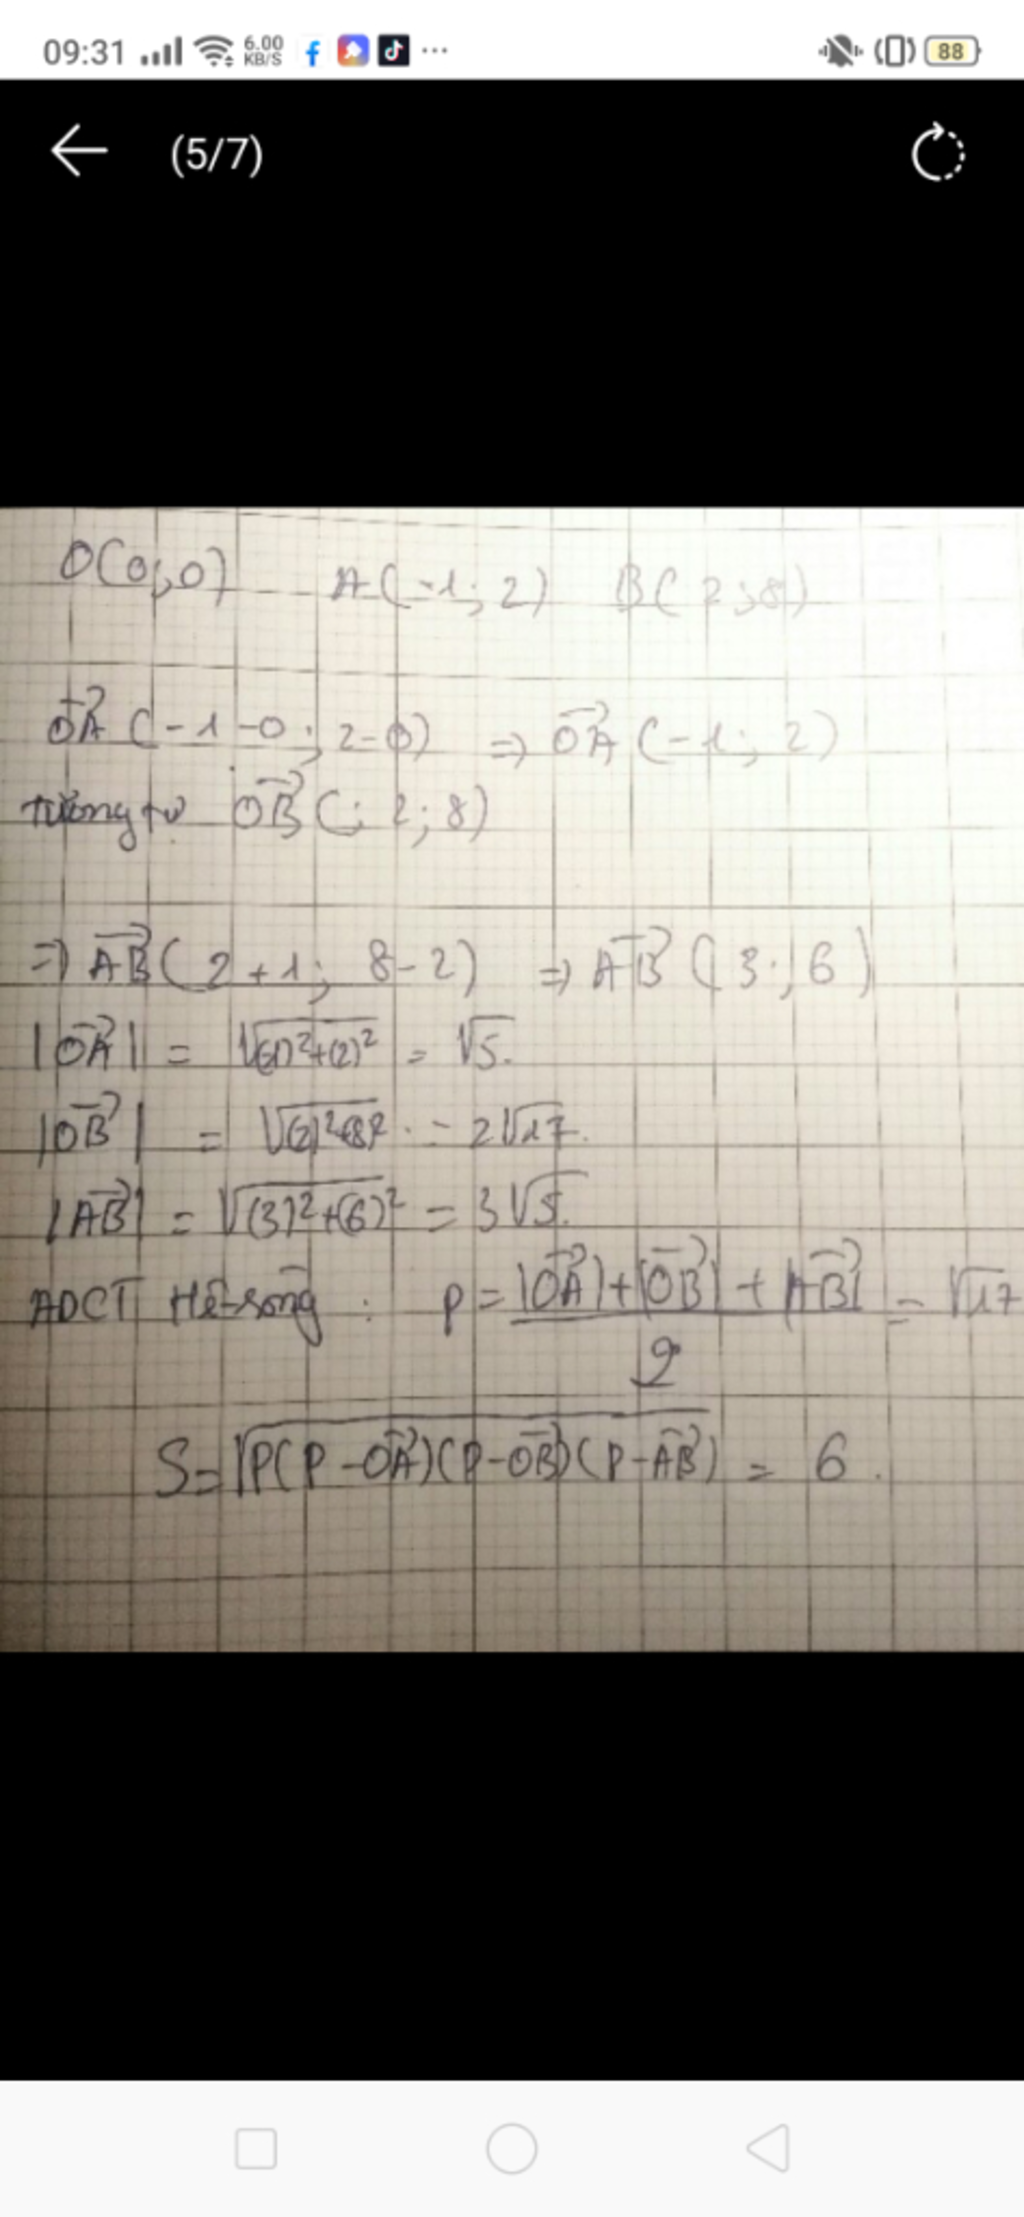 09:31 6.00 KB/S 88
(5/7)
O(0;0) A(-1;2) B(2;8)
OA→(-1-0;2-0) ⇒ OA→(-1;2)
tương tự OB→(;2;8)
⇒ AB→(2+1; 8-2) ⇒ AB→(3;6)
|OA→| = √((-1)²+(2)²) = √5.
|OB→| = √((2)²+(8)²) = 2√17.
|AB→| = √((3)²+(6)²) = 3√5.
ADCT Hê-rông : P = (|OA→|+|OB→|+|AB→|)/2 = √17
S=√(P(P-OA→)(P-OB→)(P-AB→)) = 6.